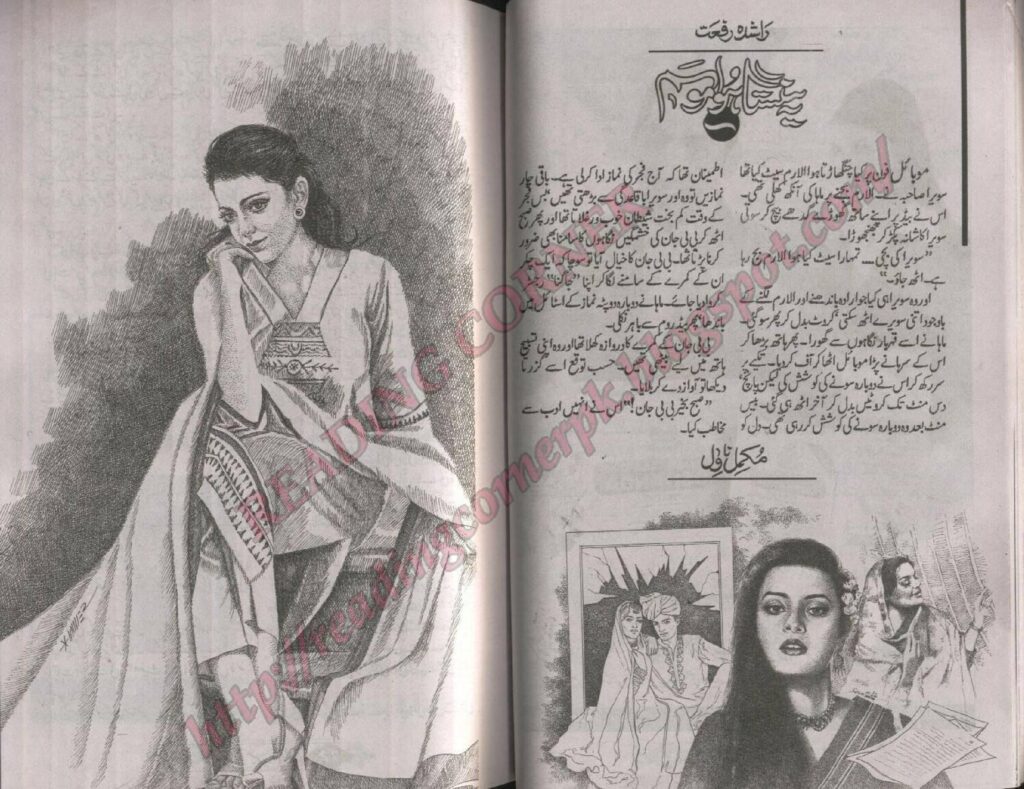 راشدہ رفعت
یہ ہنستا ہوا موسم
موبائل فون پر کیا چنگھاڑتا ہوا الارم سیٹ کیا تھا
سویرا صاحبہ نے۔ الارم بجنے پر ماہا کی آنکھ کھلی تھی۔
اس نے بیڈ پر اپنے ساتھ گھوڑے گدھے بیچ کر سوئی
سویرا کا شانہ پکڑ کر جھنجھوڑا۔
”سویرا کی بچی۔۔۔ تمہارا سیٹ کیا ہوا الارم بج رہا
ہے۔ اٹھ جاؤ۔“
اور وہ سویرا ہی کیا جو ارادہ باندھنے اور الارم لگنے کے
باوجود اتنی سویرے اٹھ سکتی، کروٹ بدل کر پھر سو گئی۔
ماہا نے اسے قہربار نگاہوں سے گھورا۔ پھر ہاتھ بڑھا کر
اس کے سرہانے پڑا موبائل اٹھا کر آف کر دیا۔ تکیے پر
سر رکھ کر اس نے دوبارہ سونے کی کوشش کی لیکن پانچ
دس منٹ تک کروٹیں بدل کر آخر اٹھ ہی گئی۔ بیس
منٹ بعد وہ دوبارہ سونے کی کوشش کر رہی تھی۔ دل کو
اطمینان تھا کہ آج فجر کی نماز ادا کر لی ہے۔ باقی چار
نمازیں تو وہ اور سویرا باقاعدگی سے پڑھتی تھیں بس فجر
کے وقت کم بخت شیطان خوب ورغلاتا تھا اور پھر صبح
اٹھ کر بی بی جان کی خشمگیں نگاہوں کا سامنا بھی ضرور
کرنا پڑتا تھا۔ بی بی جان کا خیال آیا تو سوچا کہ ایک چکر
ان کے کمرے کے سامنے لگا کر اپنا ”جاگنا“
کروا دیا جائے۔ ماہا نے دوبارہ دوپٹہ نماز کے اسٹائل میں
باندھا پھر بیڈ روم سے باہر نکلی۔
بی بی جان کے کمرے کا دروازہ کھلا تھا اور وہ اپنی تسبیح
ہاتھ میں لیے بیٹھی تھیں۔ حسب توقع اسے گزرتا
دیکھا تو آواز دے کر بلایا۔
”صبح بخیر بی بی جان!“ اس نے انہیں ادب سے
مخاطب کیا۔
مکمل ناول
READING CORNER
http://readingcornerpk.blogspot.com/